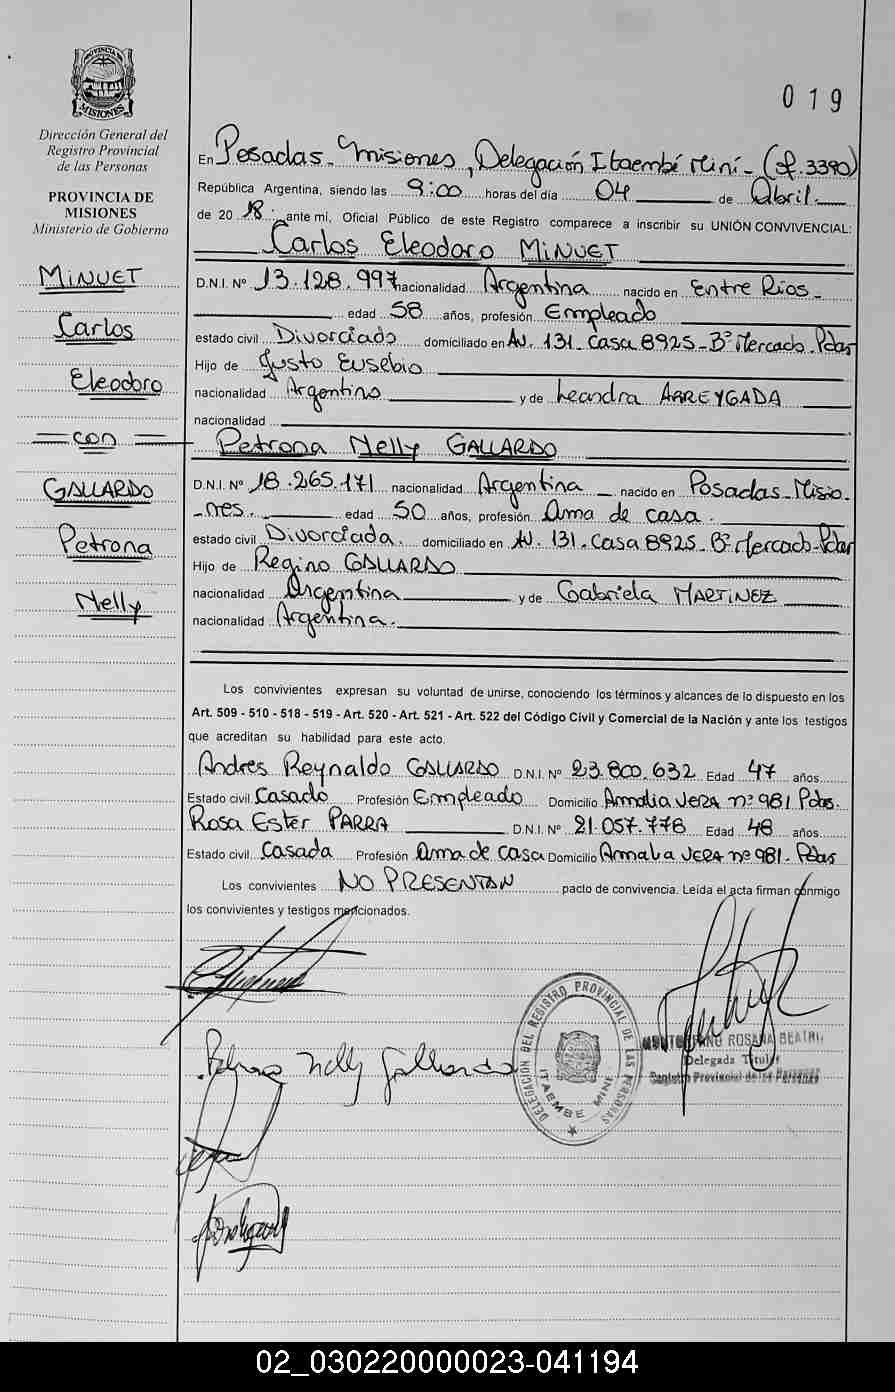 019
PROVINCIA DE
MISIONES
Dirección General del
Registro Provincial
de las Personas
PROVINCIA DE
MISIONES
Ministerio de Gobierno
MINUET
Carlos
Eleodoro
=con=
GALLARDO
Petrona
Nelly
En Posadas - Misiones, Delegación Itaembé Miní - (of. 3390)
República Argentina, siendo las 9:00 horas del día 04 de Abril.
de 20 18. ante mí, Oficial Público de este Registro comparece a inscribir su UNIÓN CONVIVENCIAL:
Carlos Eleodoro MINUET
D.N.I. Nº 13.128.997 nacionalidad Argentina nacido en Entre Ríos -
edad 58 años, profesión Empleado
estado civil Divorciado domiciliado en Av. 131. Casa 8925 - Bº Mercado - Pdas
Hijo de Justo Eusebio
nacionalidad Argentino y de Leandra ARREYGADA
nacionalidad
Petrona Nelly GALLARDO
D.N.I. Nº 18.265.171 nacionalidad Argentina nacido en Posadas - Misio-
-nes. edad 50 años, profesión Ama de casa.
estado civil Divorciada. domiciliado en Av. 131 - Casa 8925 - Bº Mercado - Pdas
Hijo de Regino GALLARDO
nacionalidad Argentina y de Gabriela MARTINEZ
nacionalidad Argentina.
Los convivientes expresan su voluntad de unirse, conociendo los términos y alcances de lo dispuesto en los
Art. 509 - 510 - 518 - 519 - Art. 520 - Art. 521 - Art. 522 del Código Civil y Comercial de la Nación y ante los testigos
que acreditan su habilidad para este acto.
Andres Reynaldo GALLARDO D.N.I. Nº 23.800.632 Edad 47 años
Estado civil Casado Profesión Empleado Domicilio Amalia VERA nº 981 Pdas.
Rosa Ester PARRA D.N.I. Nº 21.057.778 Edad 48 años
Estado civil Casada Profesión Ama de casa Domicilio Amalia VERA nº 981 - Pdas
Los convivientes NO PRESENTAN pacto de convivencia. Leída el acta firman conmigo
los convivientes y testigos mencionados.
Petrona Nelly Gallardo
DELEGACIÓN DEL REGISTRO PROVINCIAL DE LAS PERSONAS
ITAEMBE MINI
ROSANA BEATRIZ
Delegada Titular
Registro Provincial de las Personas
02_030220000023-041194